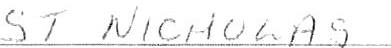 ST NICHOLAS